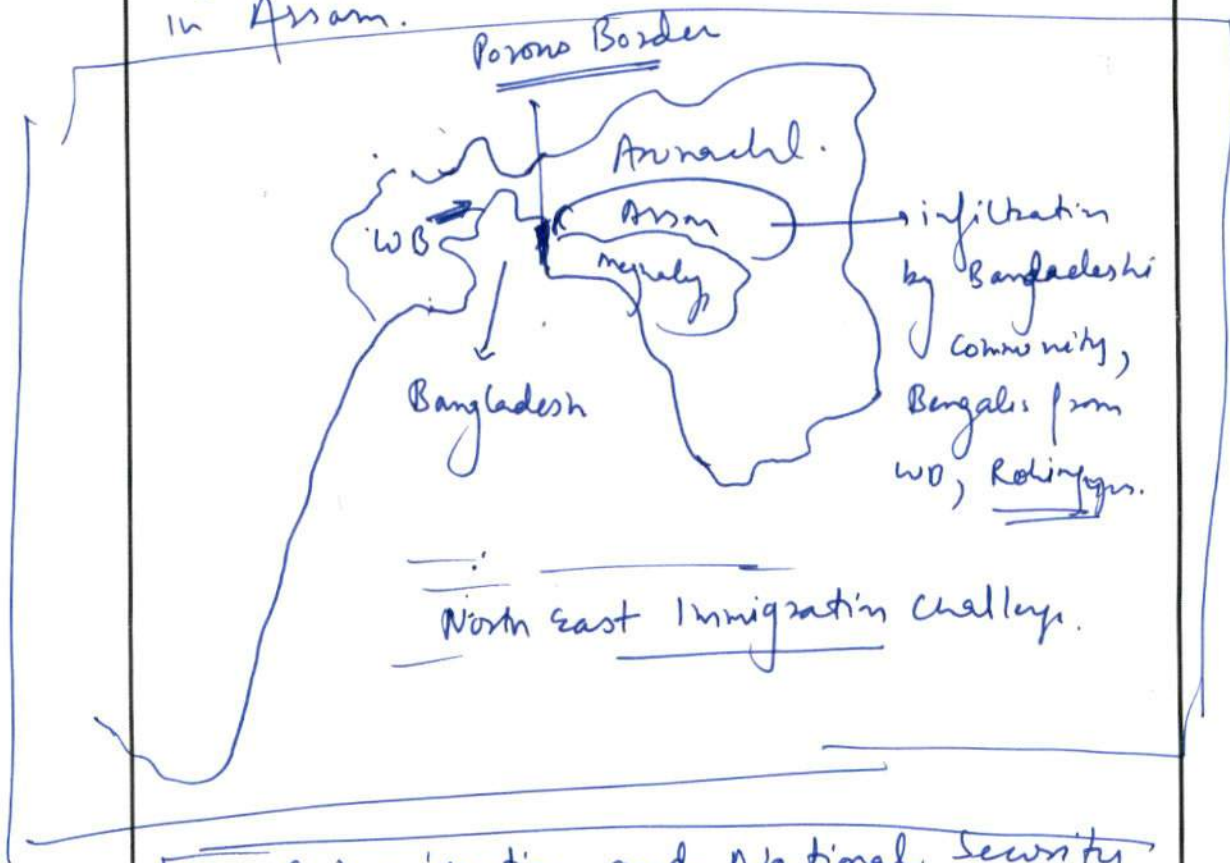 in Assam.
Porous Border
Arunachl.
Assm
WB
Meghaly
Bangladesh
infiltration
by Bangladeshi
community,
Bengalis from
WB, Rohingyas.
North East Immigration Challenge.
and National Security